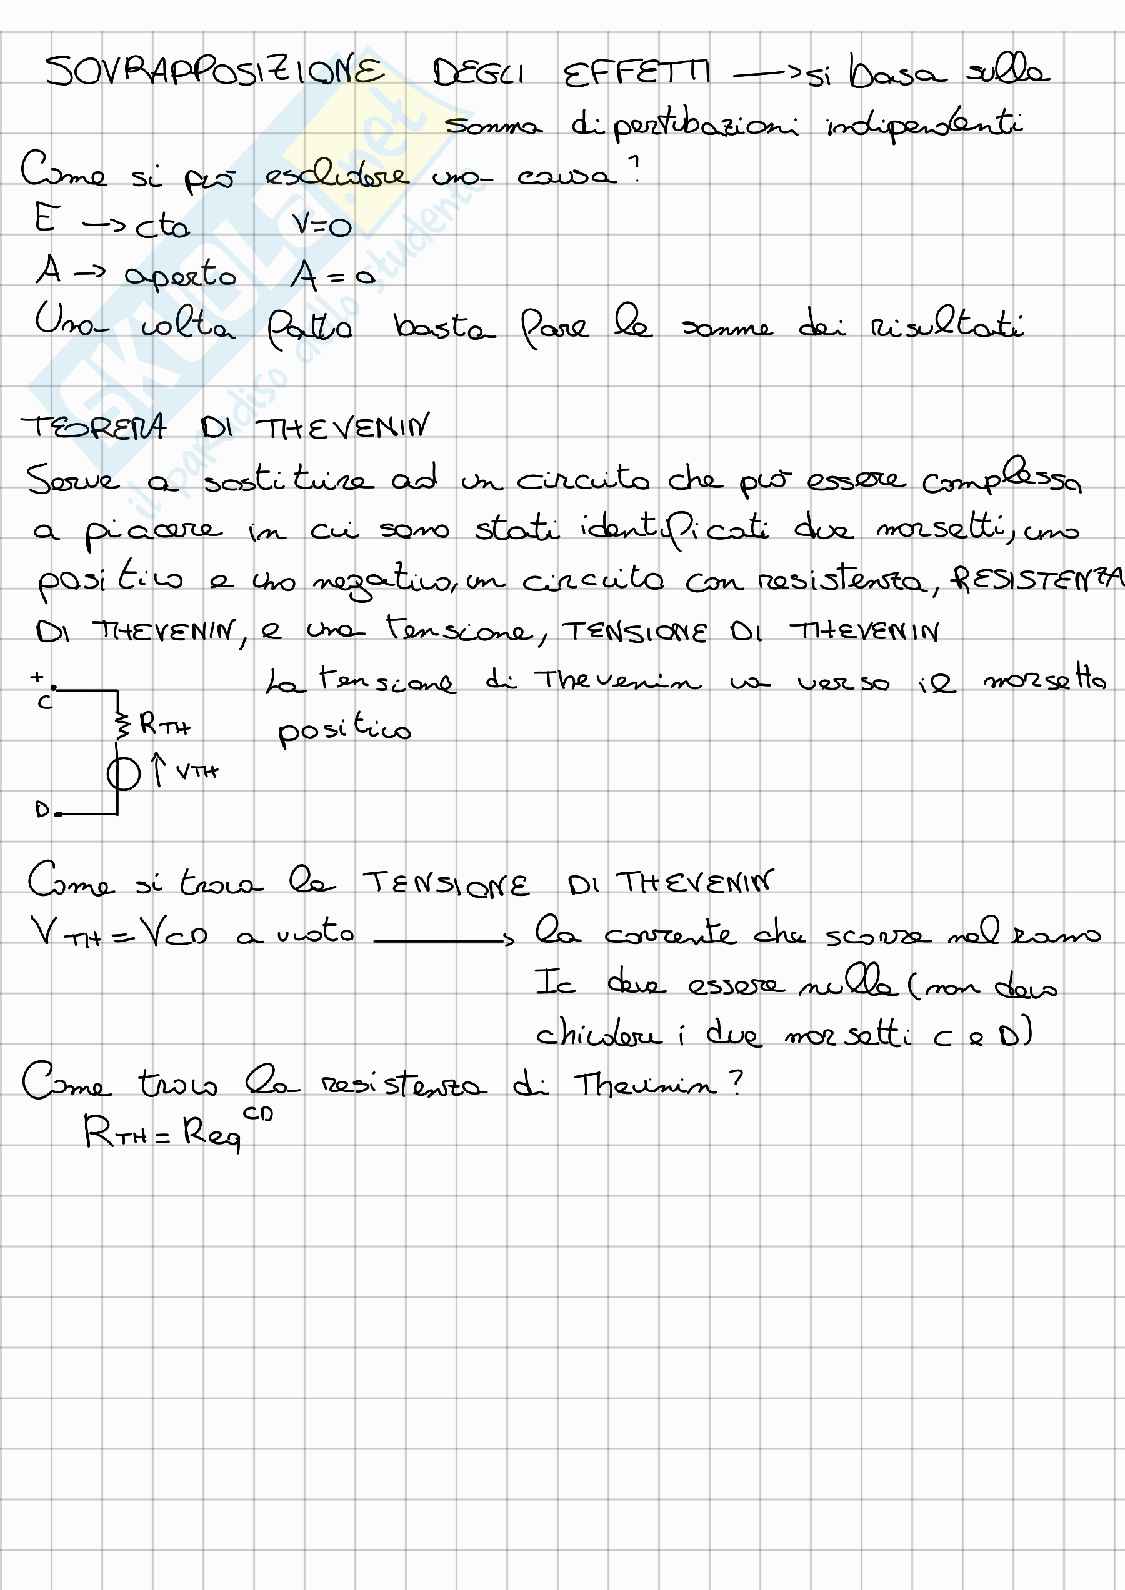 SOVRAPPOSIZIONE DEGLI EFFETTI → si basa sulla
somma di pertubazioni indipendenti
Come si può escludere una causa?
E → cto V=0
A → aperto A=0
Una volta fatto basta fare la somme dei risultati
TEOREMA DI THEVENIN
Serve a sostituire ad un circuito che può essere complesso
a piacere in cui sono stati identificati due morsetti, uno
positivo e uno negativo, un circuito con resistenza, RESISTENZA
DI THEVENIN, e una tensione, TENSIONE DI THEVENIN
+
C
RTH
VTH
D
La tensione di Thevenin va verso il morsetto
positivo
Come si trova la TENSIONE DI THEVENIN
VTH = VCD a vuoto → la corrente che scorre nel ramo
Ic deve essere nulla (non devo
chiudere i due morsetti C e D)
Come trovo la resistenza di Thevinin?
RTH = Req CD
SKUOLA.net
il paradiso dello studente